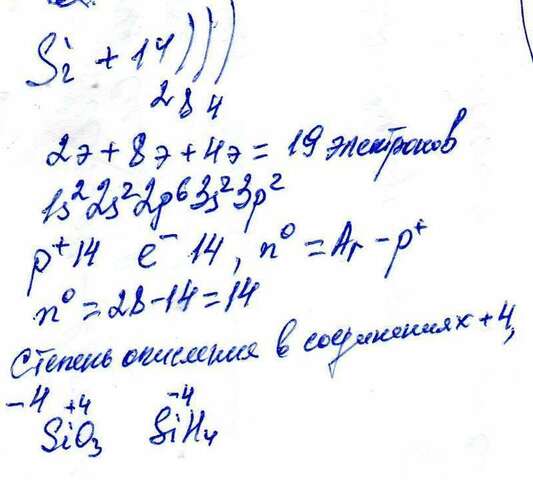 Si + 14 ) ) )
2 8 4
2э + 8э + 4э = 19 электронов
1s² 2s² 2p⁶ 3s² 3p²
p⁺ 14 e⁻ 14, n⁰ = Ar - p⁺
n⁰ = 28 - 14 = 14
Степень окисления в соединениях +4,
-4 +4 -4
SiO₃ SiH₄